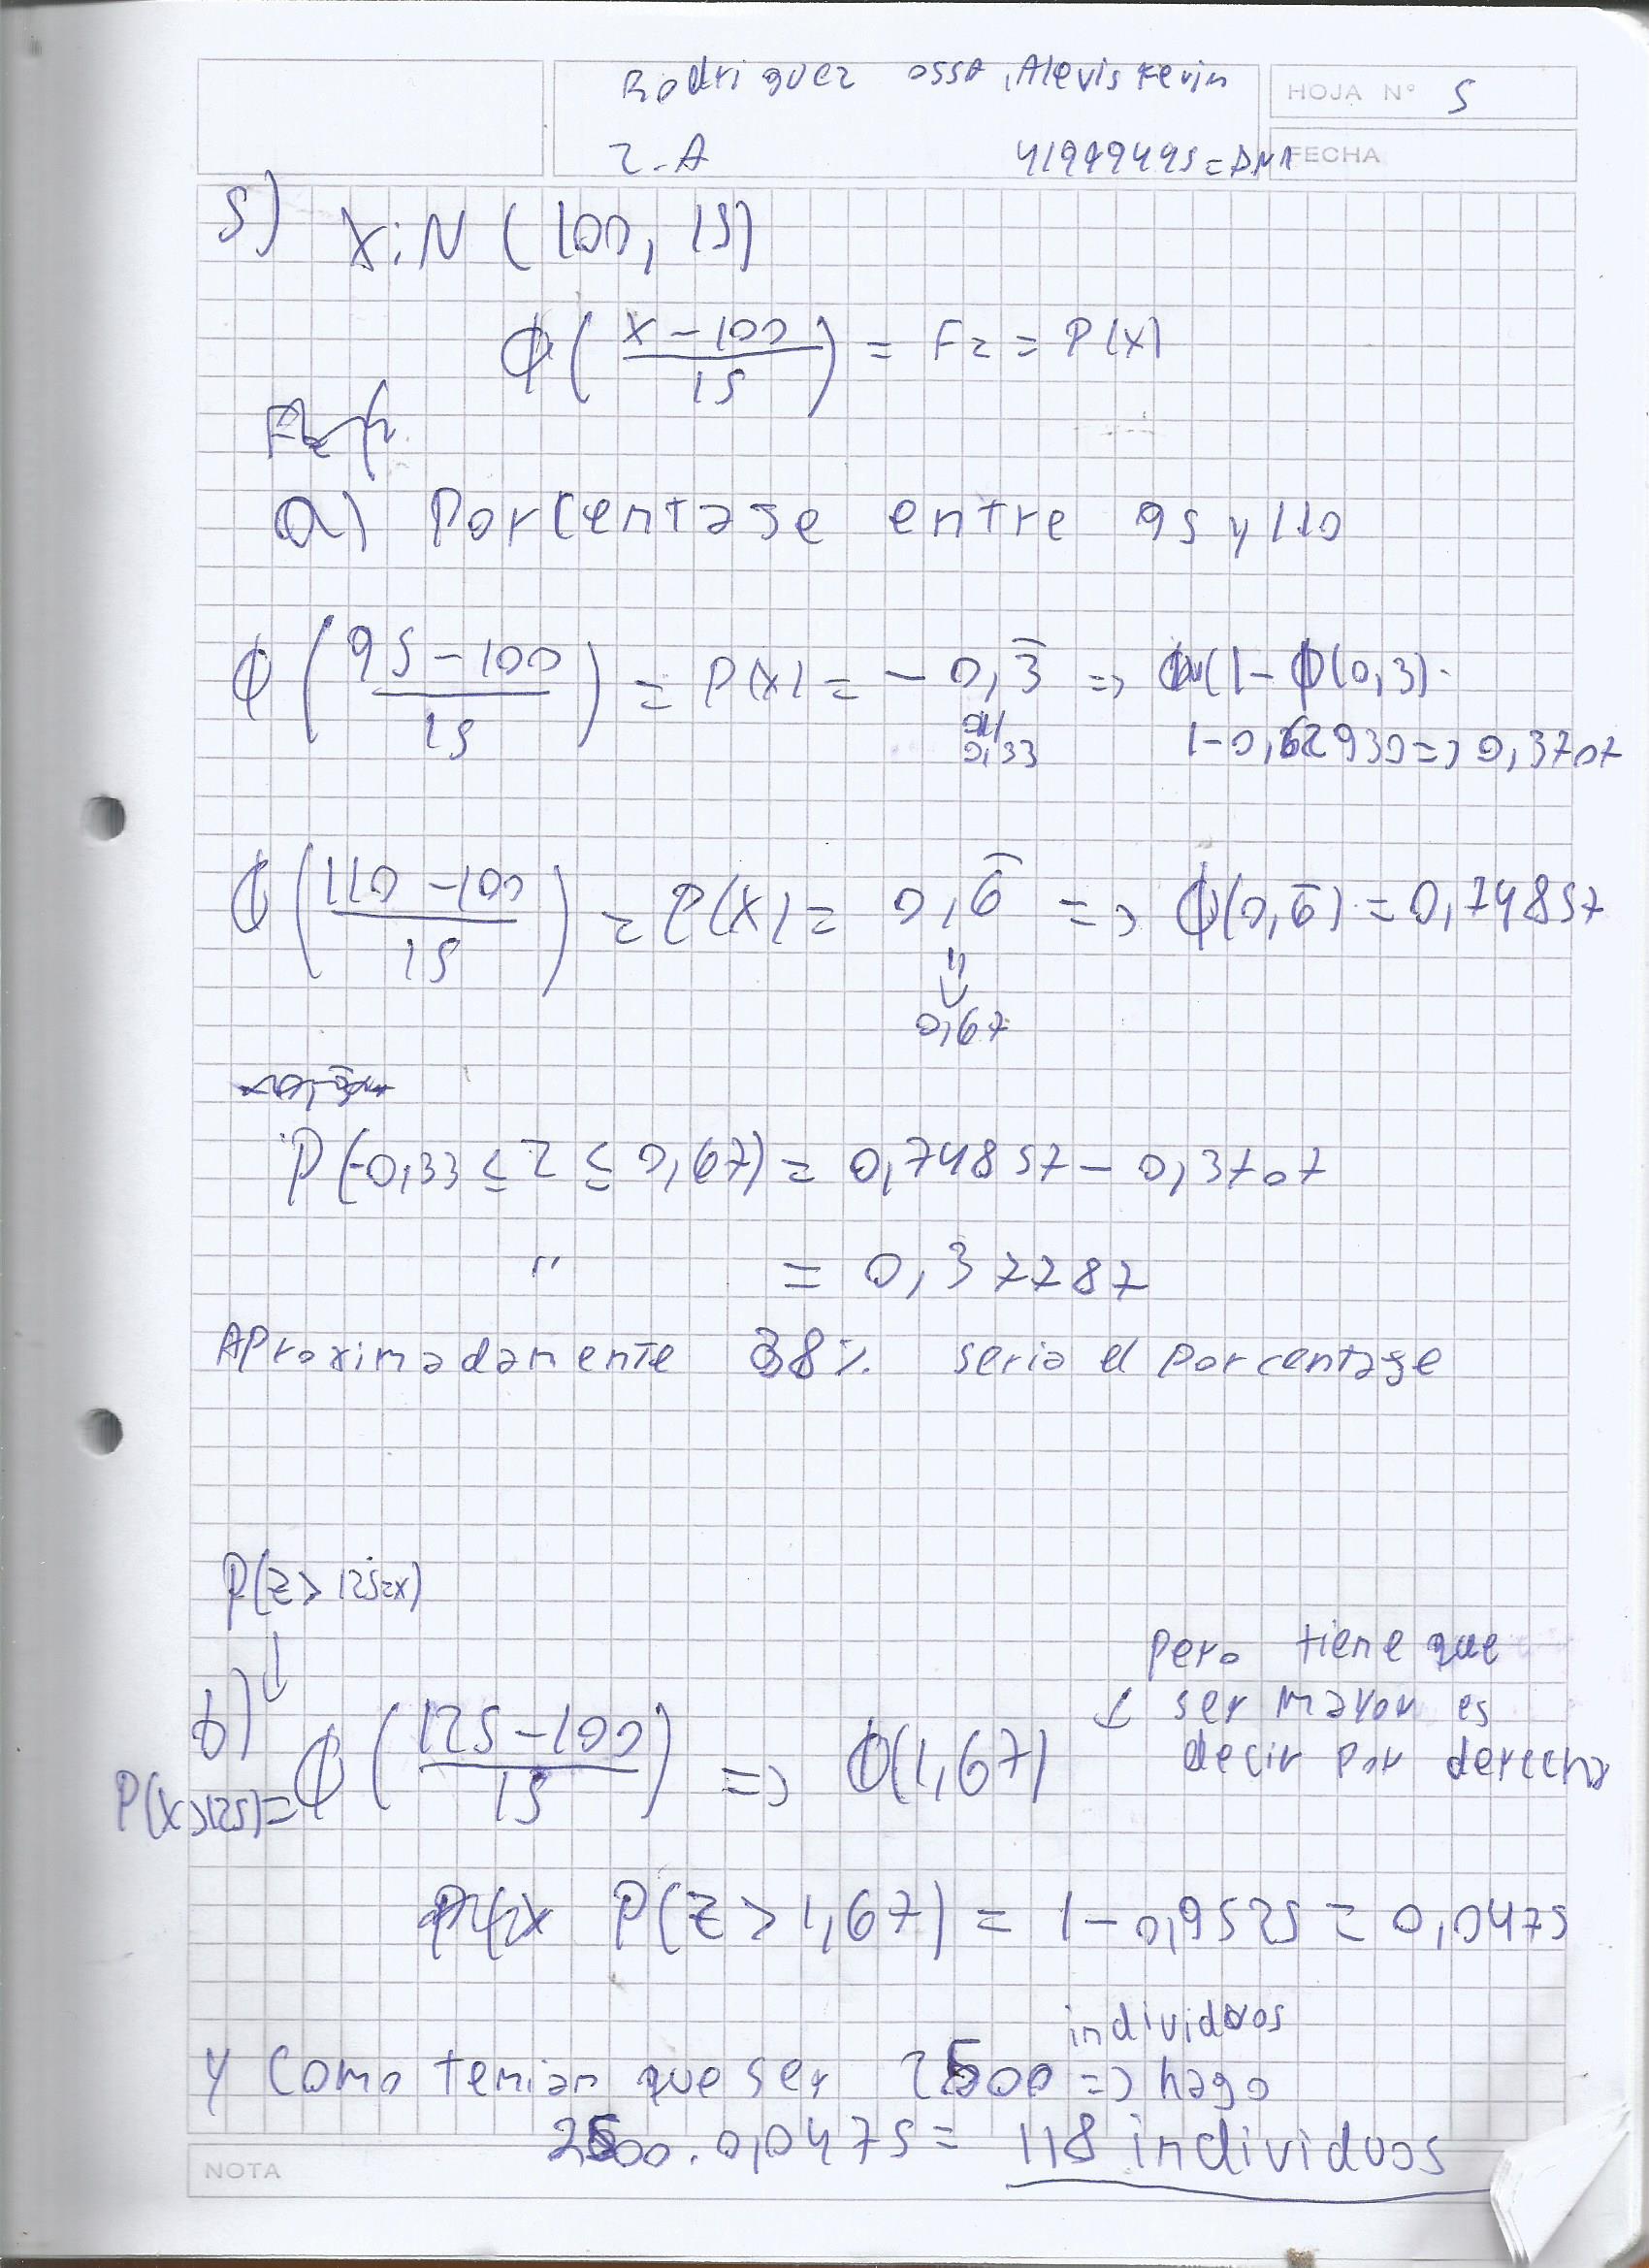 Rodriguez ossa, Alevis Kevin
HOJA N° 5
2-A
FECHA
5) X:N (100, 15)
Φ( (x-100)/15 ) = Fz = P(x)
a) Porcentage entre 95 y 110
Φ( (95-100)/15 ) = P(x) = -0,3̄ => (1-Φ(0,3)
0,33 1-0,62930 => 0,3707
Φ( (110-100)/15 ) = P(x) = 0,6̄ => Φ(0,6̄) = 0,74857
0,67
P(-0,33 ≤ Z ≤ 0,67) = 0,74857 - 0,3707
" = 0,37787
Aproximadamente 38% seria el porcentage
P(Z > 125=x)
↓
b) Φ( (125-100)/15 ) => Φ(1,67)
P(X>125)=
pero tiene que
↓ ser mayor es
decir por derecha
P(Z > 1,67) = 1-0,9525 = 0,0475
individuos
Y como tenian que ser 2500 => hago
2500 . 0,0475 = 118 individuos
NOTA